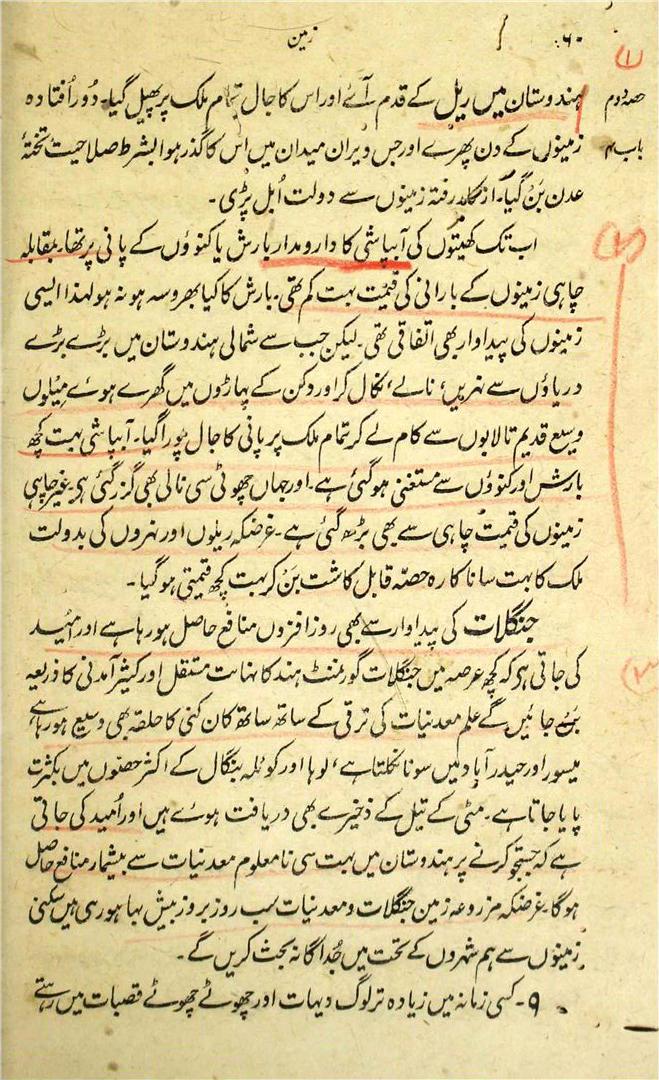 ۶۰
زمین
(۱)
حصہ دوم
ہندوستان میں ریل کے قدم آئے اور اس کا جال تمام ملک پر پھیل گیا۔ دور اُفتادہ
باب ۴
زمینوں کے دن پھرے اور جس ویران میدان میں اس کا گذر ہوا بشرط صلاحیت تختۂ
عدن بَن گیا۔ از کار رفتہ زمینوں سے دولت اُبل پڑی۔
اب تک کھیتوں کی آبپاشی کا دارومدار بارش یا کنوؤں کے پانی پر تھا۔ بمقابلہ
(۲)
چاہی زمینوں کے بارانی کی قیمت بہت کم تھی۔ بارش کا کیا بھروسہ ہو نہ ہو لہذا ایسی
زمینوں کی پیداوار بھی اتفاقی تھی۔ لیکن جب سے شمالی ہندوستان میں بڑے بڑے
دریاؤں سے نہریں، نالے، نکال کر اور دکن کے پہاڑوں میں گھرے ہوئے میلوں
وسیع قدیم تالابوں سے کام لے کر تمام ملک پر پانی کا جال پورا گیا۔ آبپاشی بہت کچھ
بارش اور کنوؤں سے مستغنی ہو گئی ہے۔ اور جہاں چھوٹی سی نالی بھی گزر گئی ہی۔ غیر چاہی
زمینوں کی قیمت چاہی سے بھی بڑھ گئی ہے۔ غرضکہ ریلوں اور نہروں کی بدولت
ملک کا بہت سا ناکارہ حصّہ قابل کاشت بَن کر بہت کچھ قیمتی ہو گیا۔
جنگلات کی پیداوار سے بھی روز افزوں منافع حاصل ہو رہا ہے اور اُمید
(۳)
کی جاتی ہی کہ کچھ عرصہ میں جنگلات گورنمنٹ ہند کا نہایت مستقل اور کثیر آمدنی کا ذریعہ
بن جائیں گے علم معدنیات کی ترقی کے ساتھ ساتھ کان کنی کا حلقہ بھی وسیع ہو رہا ہے،
میسور اور حیدرآباد میں سونا نکلتا ہے، لوہا اور کوئلہ بنگال کے اکثر حصّوں میں بکثرت
پایا جاتا ہے۔ مٹی کے تیل کے ذخیرے بھی دریافت ہوئے ہیں اور اُمید کی جاتی
ہے کہ جستجو کرنے پر ہندوستان میں بہت سی نا معلوم معدنیات سے بیشمار منافع حاصل
ہوگا۔ غرضکہ مزروعہ زمین جنگلات و معدنیات سب روز بروز بیش بہا ہو رہی ہیں سکنی
زمینوں سے ہم شہروں کے تحت میں جُداگانہ بحث کریں گے۔
۹۔ کسی زمانہ میں زیادہ تر لوگ دیہات اور چھوٹے چھوٹے قصبات میں رہتے